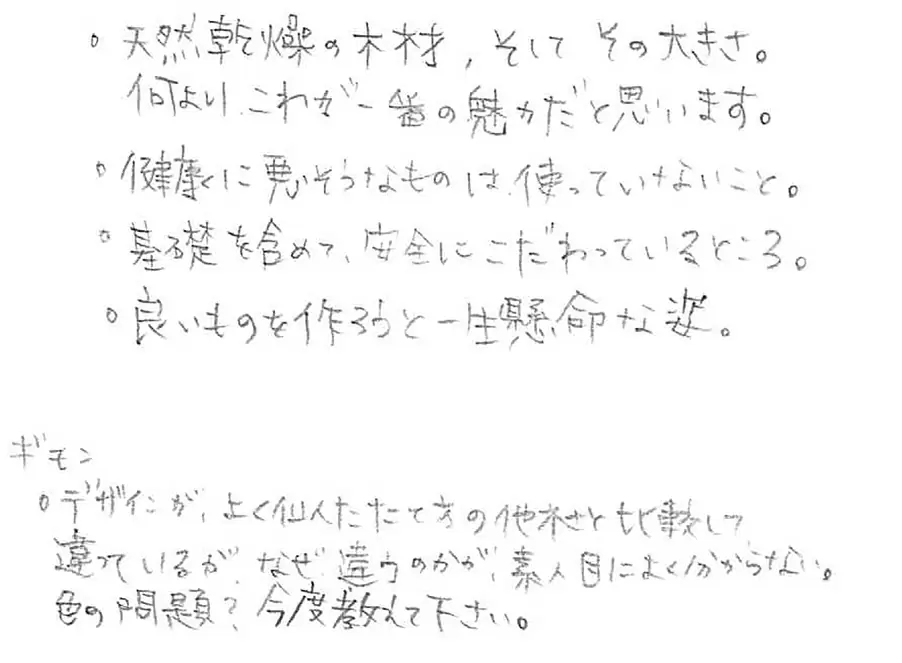 。天然乾燥の木材,そして その大きさ。
何より、これが一番の魅力だと思います。
。健康に悪いそうなものは、使っていないこと。
。基礎を含めて、安全にこだわっているところ。
。良いものを作ろうと一生懸命な姿。
ギモン
。デザインが、よく似たたて方の他社さと比較して、
違っているが、なぜ違うのかが、素人目によく分からない。
色の問題? 今度教えて下さい。